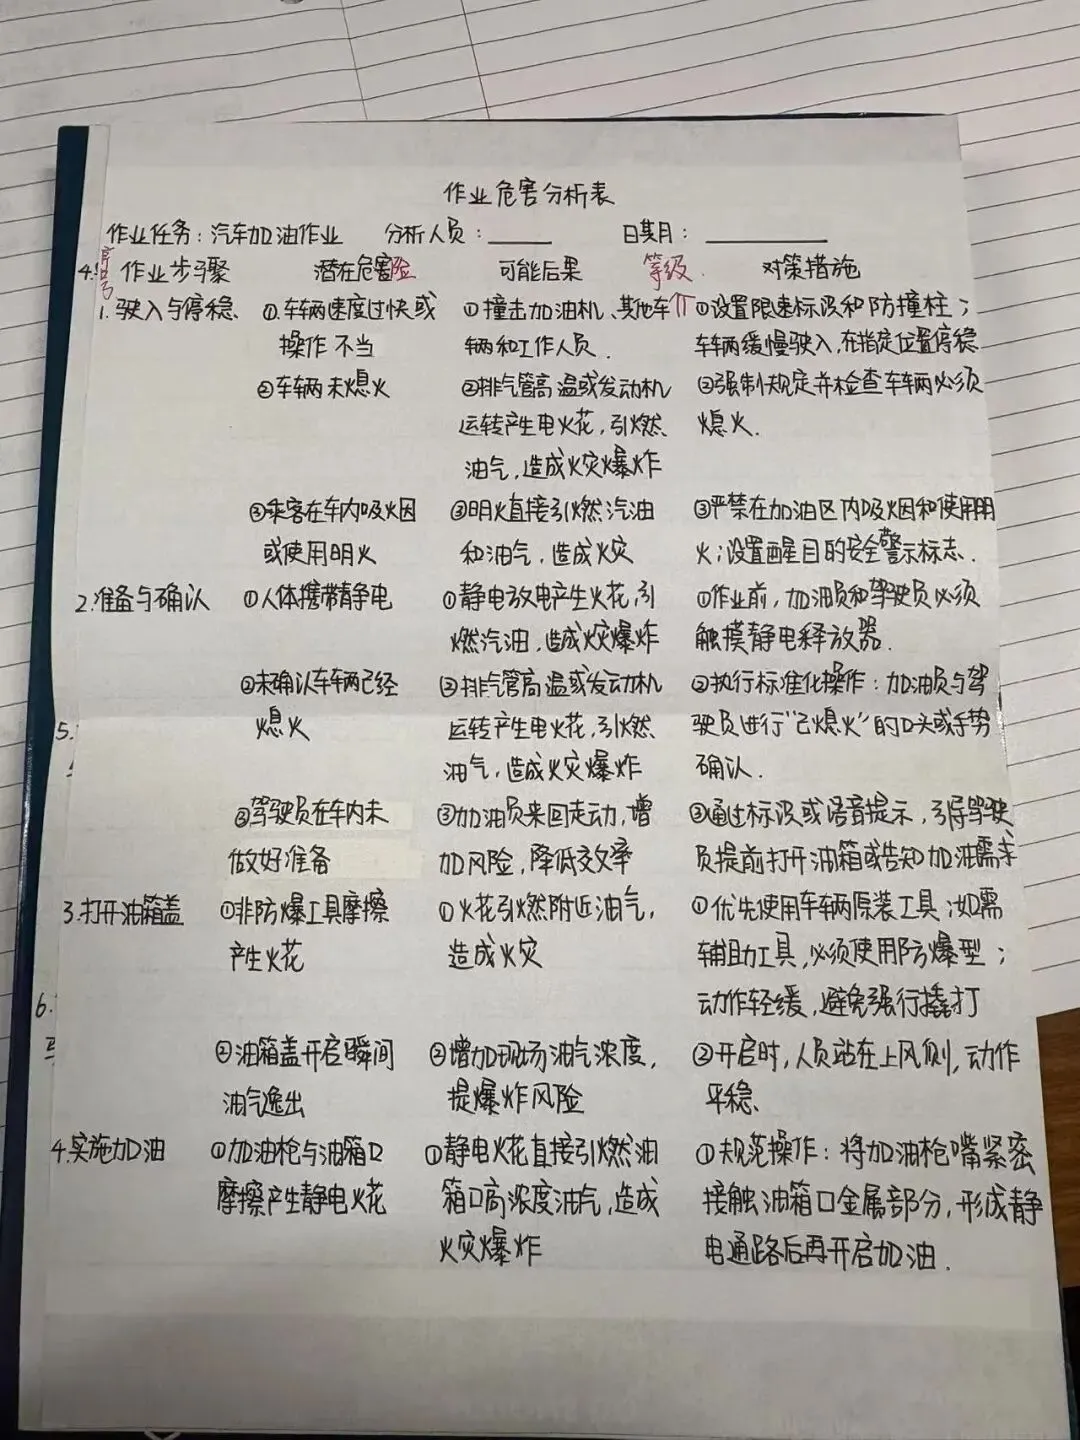 作业危害分析表
作业任务：汽车加油作业 分析人员：____ 日期：____
序号 作业步骤 潜在危害险 可能后果 等级 对策措施
1. 驶入与停稳、 ①.车辆速度过快或 ①撞击加油机、其他车 ①设置限速标识和防撞柱；
操作不当 辆和工作人员. 车辆缓慢驶入,在指定位置停稳
②车辆未熄火 ②排气管高温或发动机 ②强制规定并检查车辆必须
运转产生电火花,引燃 熄火.
油气,造成火灾爆炸
③乘客在车内吸烟 ③明火直接引燃汽油 ③严禁在加油区内吸烟和使用明
或使用明火 和油气,造成火灾 火;设置醒目的安全警示标志.
2.准备与确认 ①人体携带静电 ①静电放电产生火花,引 ①作业前,加油员和驾驶员必须
燃汽油,造成火灾爆炸 触摸静电释放器.
②未确认车辆已经 ②排气管高温或发动机 ②执行标准化操作：加油员与驾
熄火 运转产生电火花,引燃 驶员进行“已熄火”的口头或手势
油气,造成火灾爆炸 确认.
③驾驶员在车内未 ③加油员来回走动,增 ③通过标识或语音提示,引导驾驶
做好准备 加风险,降低效率 员提前打开油箱或告知加油需求
3.打开油箱盖 ①非防爆工具摩擦 ①火花引燃附近油气, ①优先使用车辆原装工具;如需
产生火花 造成火灾 辅助工具,必须使用防爆型；
动作轻缓,避免强行撬打
②油箱盖开启瞬间 ②增加现场油气浓度, ②开启时,人员站在上风侧,动作
油气逸出 提爆炸风险 平稳、
4.实施加油 ①加油枪与油箱口 ①静电火花直接引燃油 ①规范操作：将加油枪嘴紧密
摩擦产生静电火花 箱口高浓度油气,造成 接触油箱口金属部分,形成静
火灾爆炸 电通路后再开启加油.
4.
5.
6.